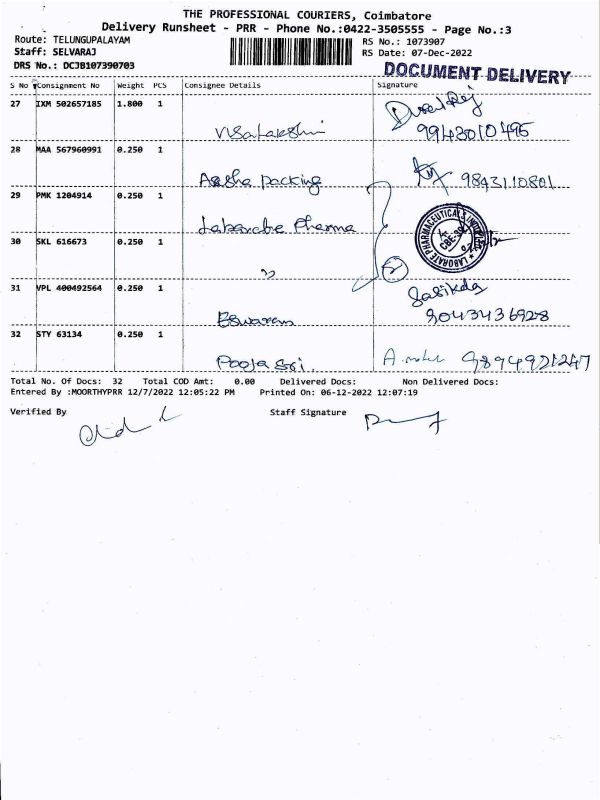 THE PROFESSIONAL COURIERS, Coimbatore
Delivery Runsheet - PRR - Phone No.:0422-3505555 - Page No.:3
Route: TELUNGUPALAYAM
RS No.: 1073907
Staff: SELVARAJ
RS Date: 07-Dec-2022
DRS No.: DCJB107390703
DOCUMENT DELIVERY
S No Consignment No Weight PCS Consignee Details Signature
27 IXM 502657185 1.800 1
9943010495
28 MAA 567960991 0.250 1
packing 9843110801
29 PMK 1204914 0.250 1
Pharma
LABORATE PHARMACEUTICALS
30 SKL 616673 0.250 1
2
31 VPL 400492564 0.250 1
Sasikala
Eswaran 9043436928
32 STY 63134 0.250 1
Pooja Sri. 9894921247
Total No. Of Docs: 32 Total COD Amt: 0.00 Delivered Docs: Non Delivered Docs:
Entered By :MOORTHYPRR 12/7/2022 12:05:22 PM Printed On: 06-12-2022 12:07:19
Verified By Staff Signature